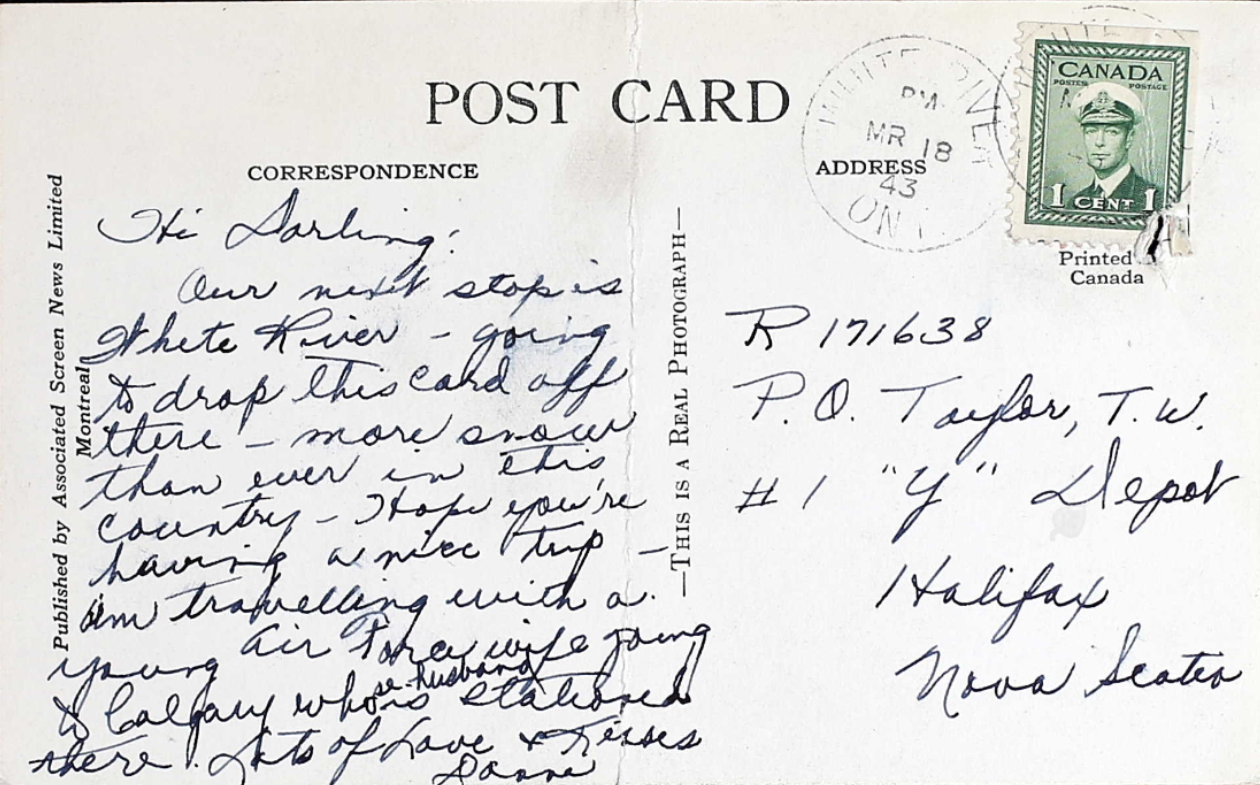 POST CARD
CORRESPONDENCE
ADDRESS
Published by Associated Screen News Limited
Montreal
—THIS IS A REAL PHOTOGRAPH—
WHITE RIVER
PM
MR 18
43
ONT
CANADA
POSTES POSTAGE
1 CENT 1
Printed
Canada
Hi Darling:
Our next stop is
White River – going
to drop this card off
there – more snow
than ever in this
country – Hope you're
having a nice trip –
am travelling with a
young air force wife going
to Calgary whose husband is stationed
there. Lots of Love & Kisses
R 171638
P.O. Taylor, T.W.
# 1 "Y" Depot
Halifax
Nova Scotia